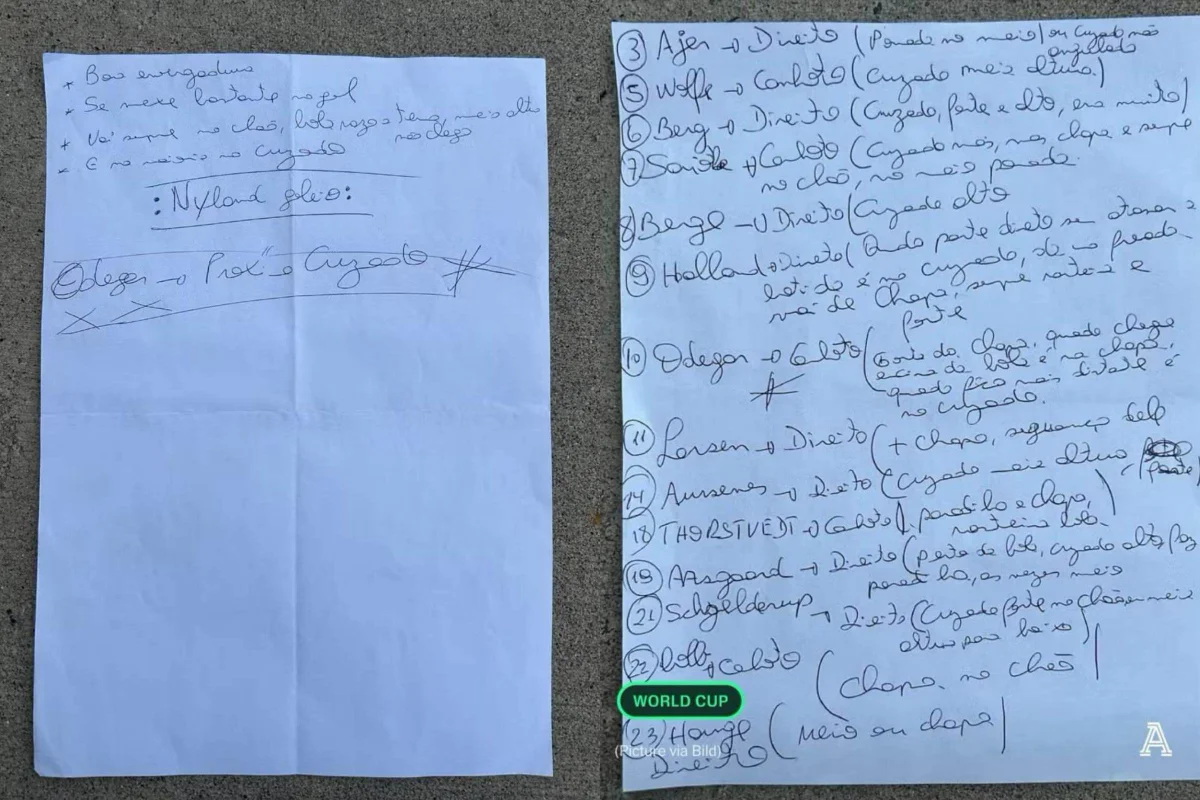 * Boa envergadura
* Se mexe bastante no gol
* Vai sempre no chão, bola rasa e tenta, meia alto
no chega
* E na maioria no cruzado
: Nyland goleio :
Odegar → Proxi o Cruzado
X X
③ Ajer → Direito (Parado no meio) ou cruzado não
angulado
⑤ Wolfe → Canhoto (Cruzado meia altura)
⑥ Berg → Direito (Cruzado, forte e alto, era muito)
⑦ → Canhoto (Cruzado mas, mas, chapa e sempre
no chão, no meio parada.
8) Berge → Direito (Cruzado alto
⑨ Halland → Direito (Quando parte direto sem atrasar a
batida é no cruzado, da uma freada
vai de chapa, sempre rasteira e
forte
⑩ Odegar → Caloto (Bate de chapa, quando chega
encima da bola é na chapa,
quando fica mais distante é
no cruzado.
⑪ Larsen → Direito (+ chapa, segurança dele
14) Aursenes → Direito (Cruzado meia altura
(forte)
18) THORSTVEDT → Caloto (paradilho e chapa,
rasteira bola.
⑲ Aasgaard → Direito (perto da bola, cruzado alto, faz
paradilho, as vezes meio
㉑ Schjelderup → Direito (Cruzado forte no chão ou meia
altura para baixo)
㉒ → Caloto (Chapa, no chão)
WORLD CUP
(23) Hauge (Meio ou chapa)
Direito
(Picture via Bild)
A